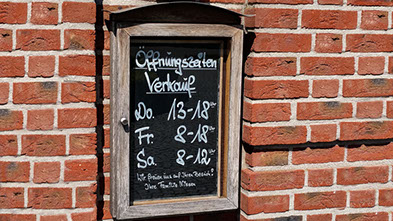 Öffnungszeiten
Verkauf
Do. 13-18 Uhr
Fr. 8-18 Uhr
Sa. 8-12 Uhr
Wir freuen uns auf Ihren Besuch!
Ihre Familie